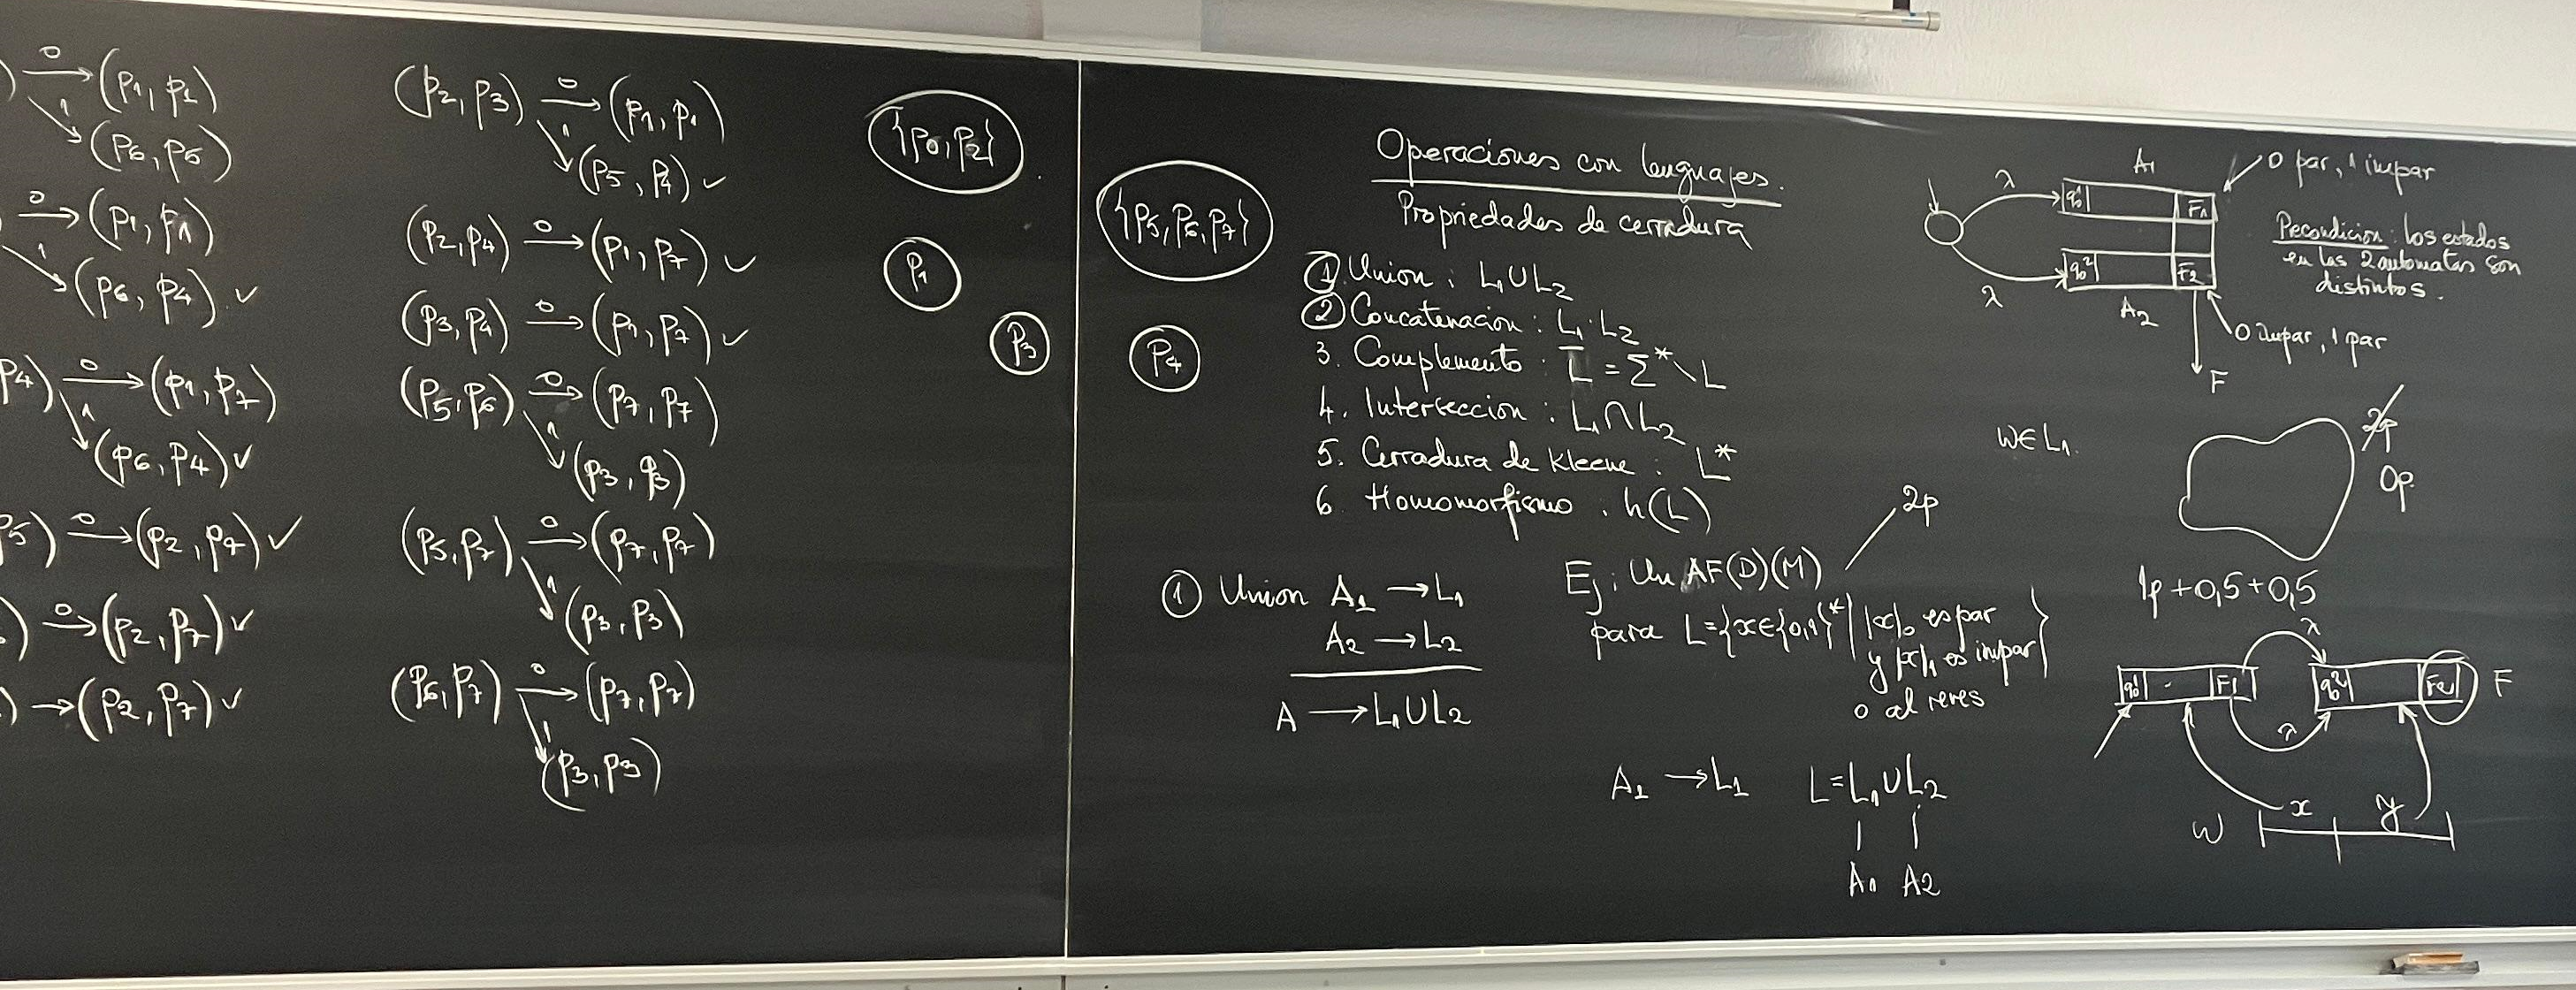 ) 0→ (p1, p2)
1↘ (p6, p5)
0→ (p1, p1)
1↘ (p6, p4) ✓
p4) 0→ (p1, p7)
1↘ (p6, p4) ✓
p5) 0→ (p2, p7) ✓
) 0→ (p2, p7) ✓
) → (p2, p7) ✓
(p2, p3) 0→ (p1, p1)
1↘ (p5, p4) ✓
(p2, p4) 0→ (p1, p7) ✓
(p3, p4) 0→ (p1, p7) ✓
(p5, p6) 0→ (p7, p7)
1↘ (p3, p3)
(p5, p7) 0→ (p7, p7)
1↘ (p3, p3)
(p6, p7) 0→ (p7, p7)
1↘ (p3, p3)
{p0, p2}
p1
p3
{p5, p6, p7}
p4
Operaciones con lenguajes.
Propiedades de cerradura
① Union : L1 ∪ L2
② Concatenacion : L1 · L2
3. Complemento : L̅ = Σ* \ L
4. Interseccion : L1 ∩ L2
5. Cerradura de Kleene : L*
6 Homomorfismo : h(L)
① Union A1 → L1
A2 → L2
A → L1 ∪ L2
Ej: Un AF(D)(M)
2p
para L = {x ∈ {0,1}* | |x|0 es par
y |x|1 es impar}
o al reves
A1 → L1
L = L1 ∪ L2
A1 A2
λ
λ
A1
q0¹ F1
q0² F2
A2
F
0 par, 1 impar
Precondicion: los estados
en las 2 automatas son
distintos.
0 impar, 1 par
w ∈ L1.
2p
0p.
1p + 0,5 + 0,5
λ
q0¹ F1 q0² F2 F
λ
w x y